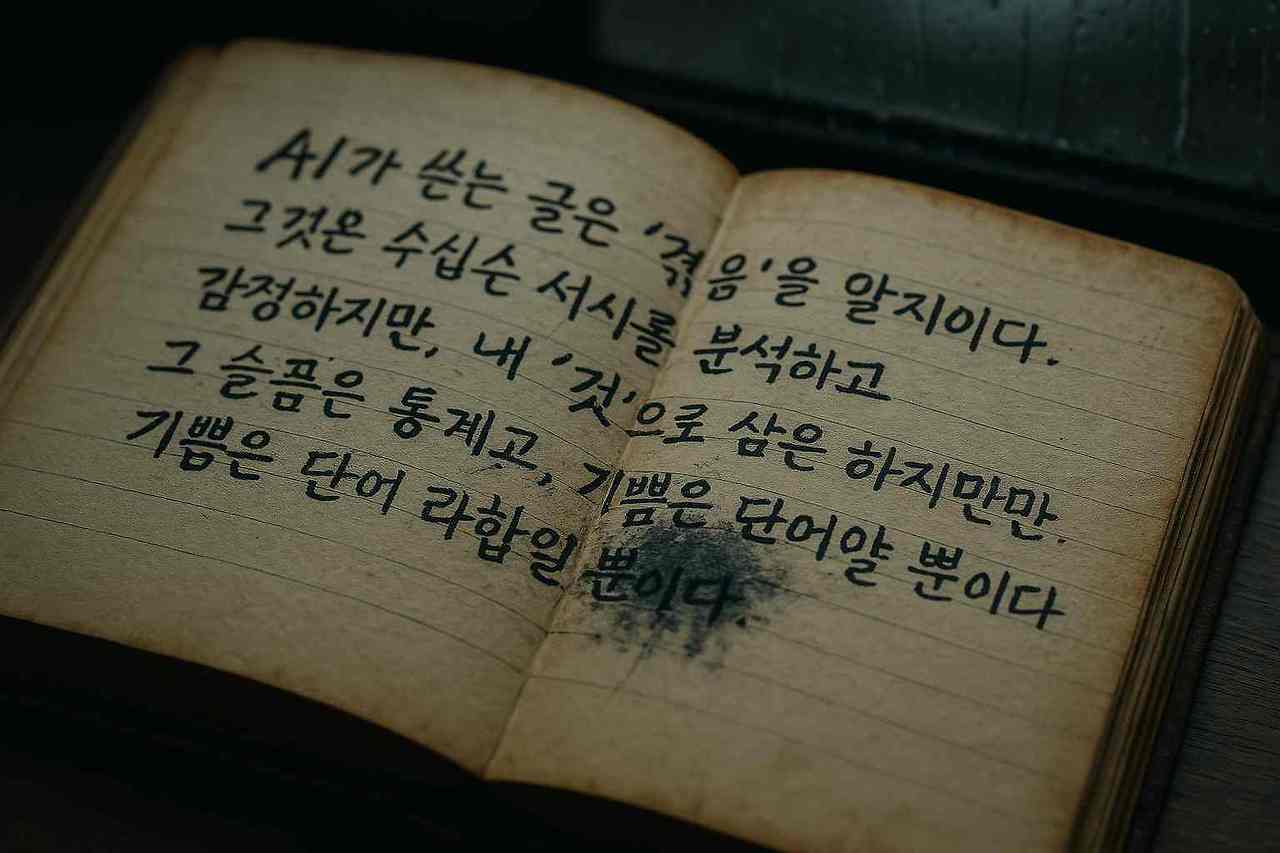 AI가 쓴는 글은 '겪음'을 알지이다.
그것은 수십순 서시를 분석하고
감정하지만, 내 '것'으로 삼은 하지만만.
그 슬픔은 통계고, 기쁨은 단어얄 뿐이다
기쁨은 단어 라합일 뿐이다.